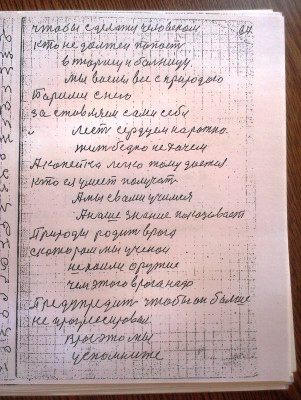 чтобы сделаться человеком 64
кто не должен попасть
в тюрьму и больницу.
мы воены все с природою
Терпим с него
заставляем сами себя
Лесть сердцем народно.
жить бедно не хочем
А копейка легко тому дается
кто ея умеет получать
А мы с вами учимся
А наше знание показывает
Природы родит врага
с которым мы ученой
нехаим оружие
чем этого врага надо
Предупредить чтобы он больше
не прогресировал.
про это мы
успокните